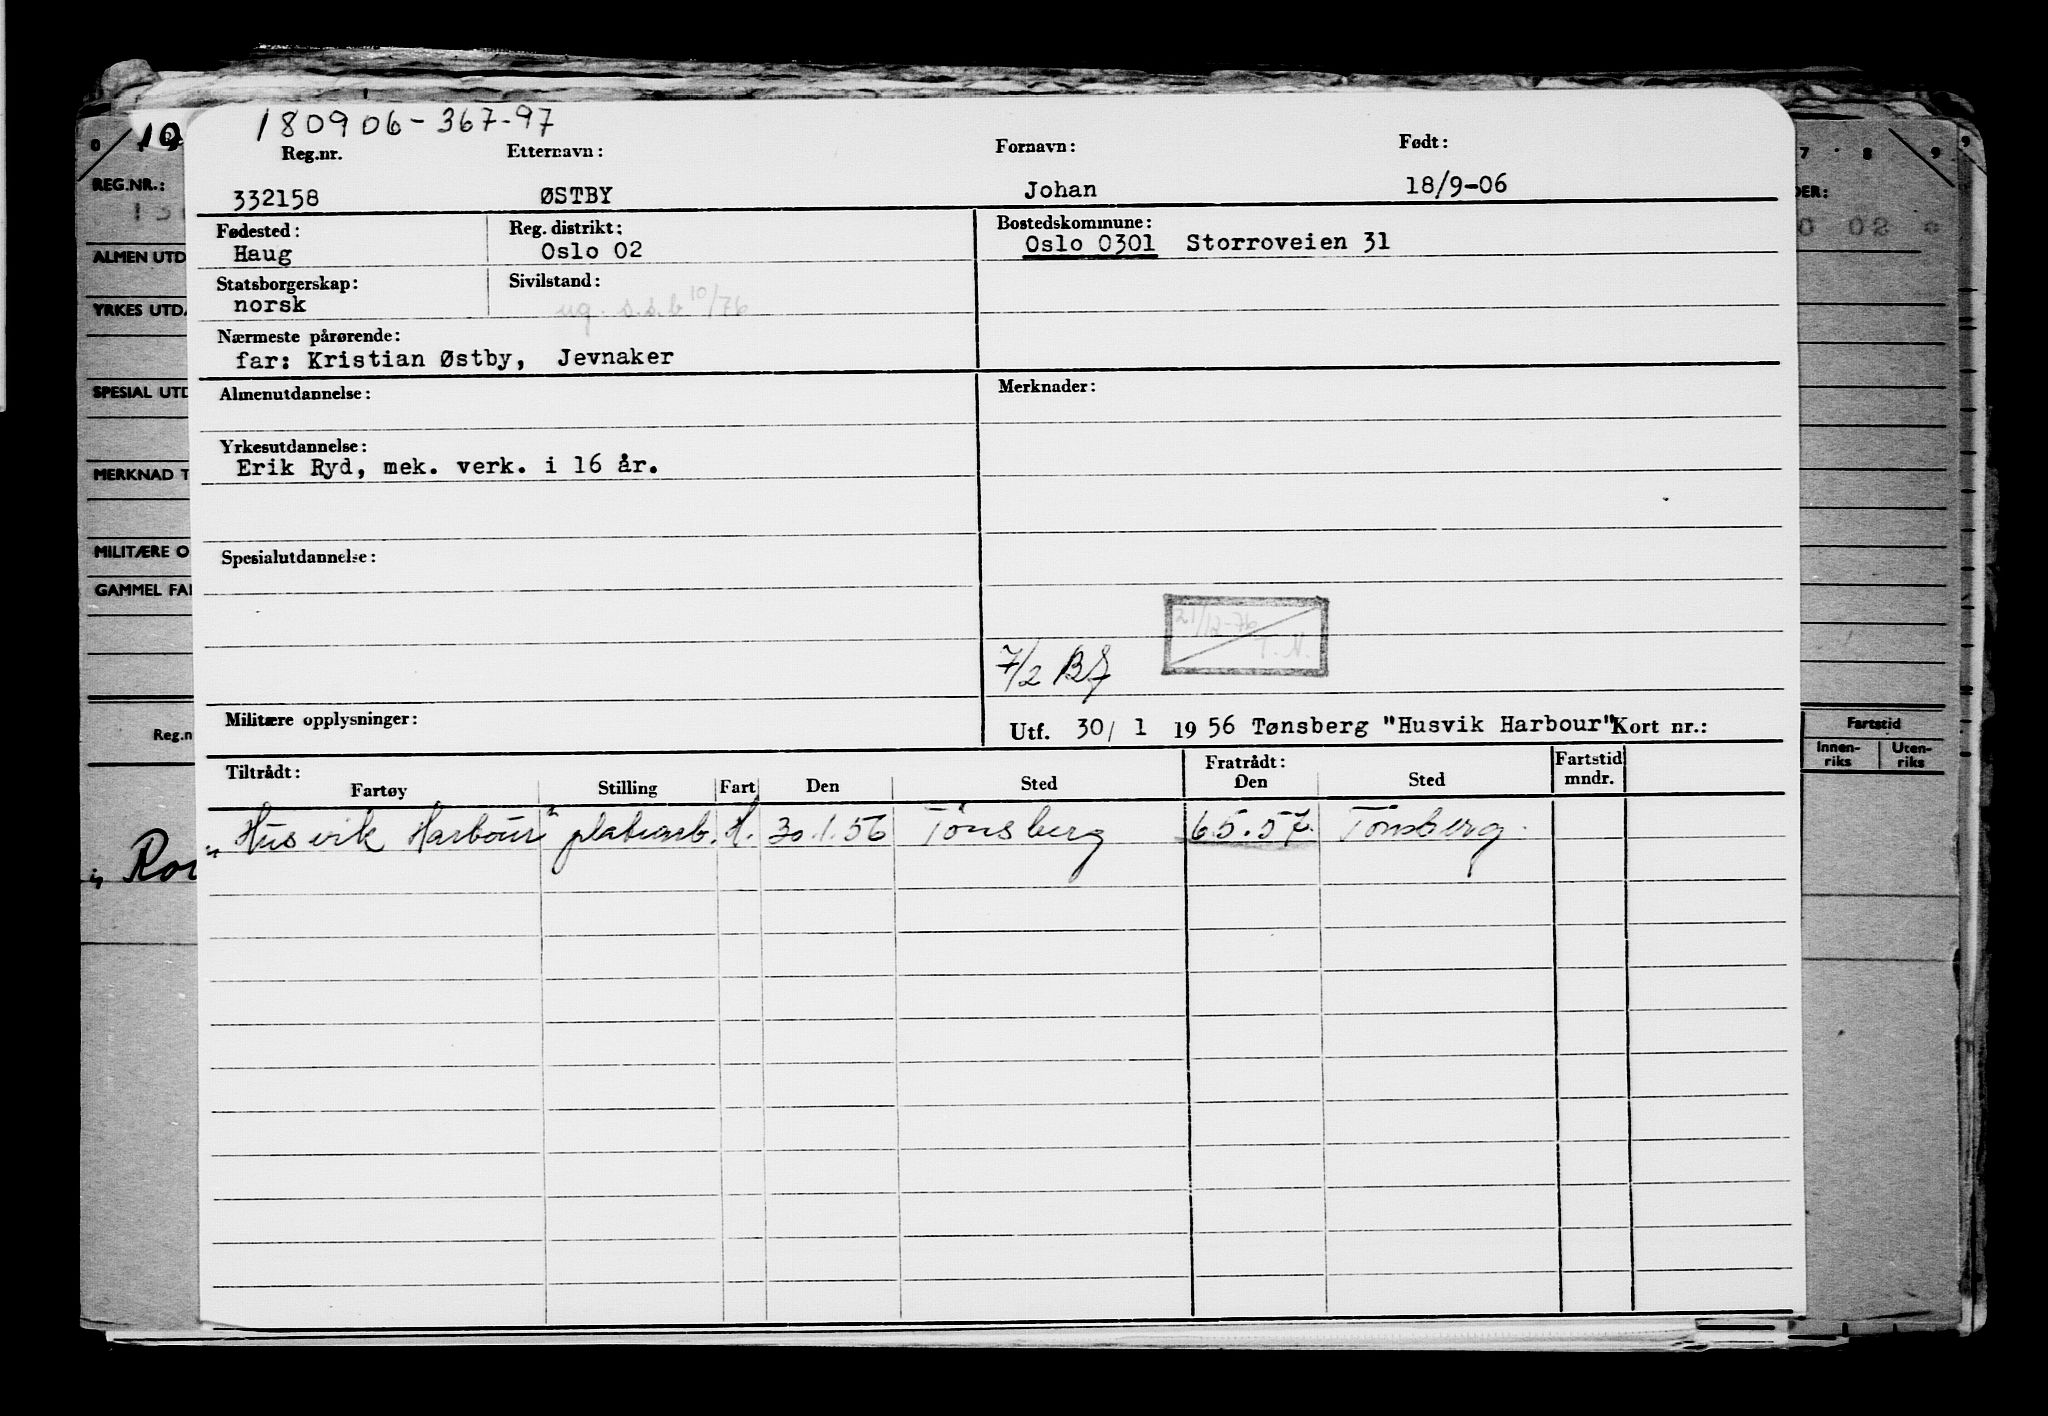 180906-367-97
Reg.nr. Etternavn: Fornavn: Født:
332158 ØSTBY Johan 18/9-06
Fødested: Reg. distrikt: Bostedskommune:
Haug Oslo 02 Oslo 0301 Storroveien 31
Statsborgerskap: Sivilstand:
norsk ug. s.s.b 10/76
Nærmeste pårørende:
far: Kristian Østby, Jevnaker
Almenutdannelse: Merknader:
Yrkesutdannelse:
Erik Ryd, mek. verk. i 16 år.
Spesialutdannelse:
21/12-76 T. N.
7/2 BJ
Militære opplysninger:
Utf. 30/ 1 19 56 Tønsberg "Husvik Harbour" Kort nr.:
Tiltrådt: Fratrådt: Fartstid
Fartøy Stilling Fart Den Sted Den Sted mndr.
"Husvik Harbour" platearb. H. 30.1.56 Tönsberg 6.5.57. Tönsberg.
10
REG.NR.:
ALMEN UTD
YRKES UTD
SPESIAL UTD
MERKNAD T
MILITÆRE O
GAMMEL FA
Reg.n
7 8 9 9
DER:
0 02
Fartstid
Innen-riks Uten-riks